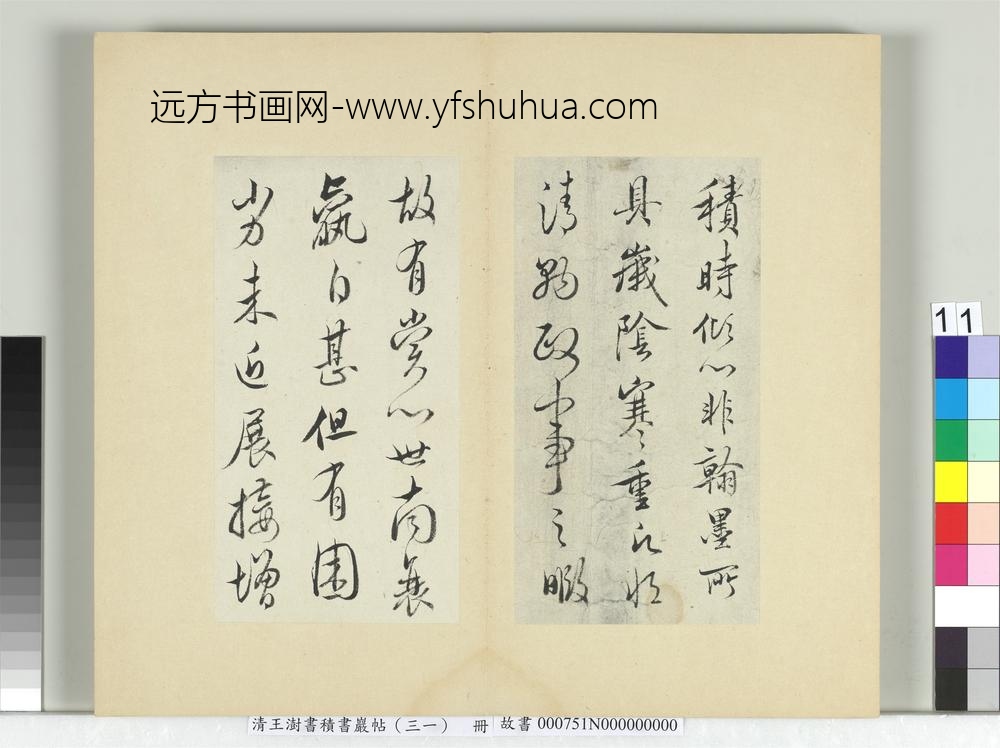 远方书画网-www.yfshuhua.com
積時傾心非翰墨所
具歲陰寒重
清政事之暇
故有賞心世南衰
羸日甚但有困
劣未近展接增
11
清王澍書積書巖帖(三一) 冊 故書 000751N000000000